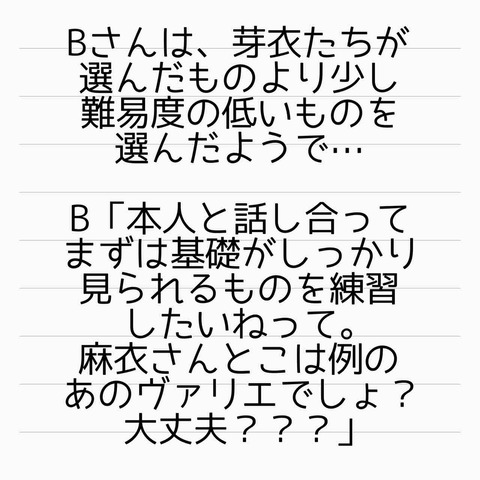 Bさんは、芽衣たちが
選んだものより少し
難易度の低いものを
選んだようで…
B「本人と話し合って
まずは基礎がしっかり
見られるものを練習
したいねって。
麻衣さんとこは例の
あのヴァリエでしょ？
大丈夫？？？」